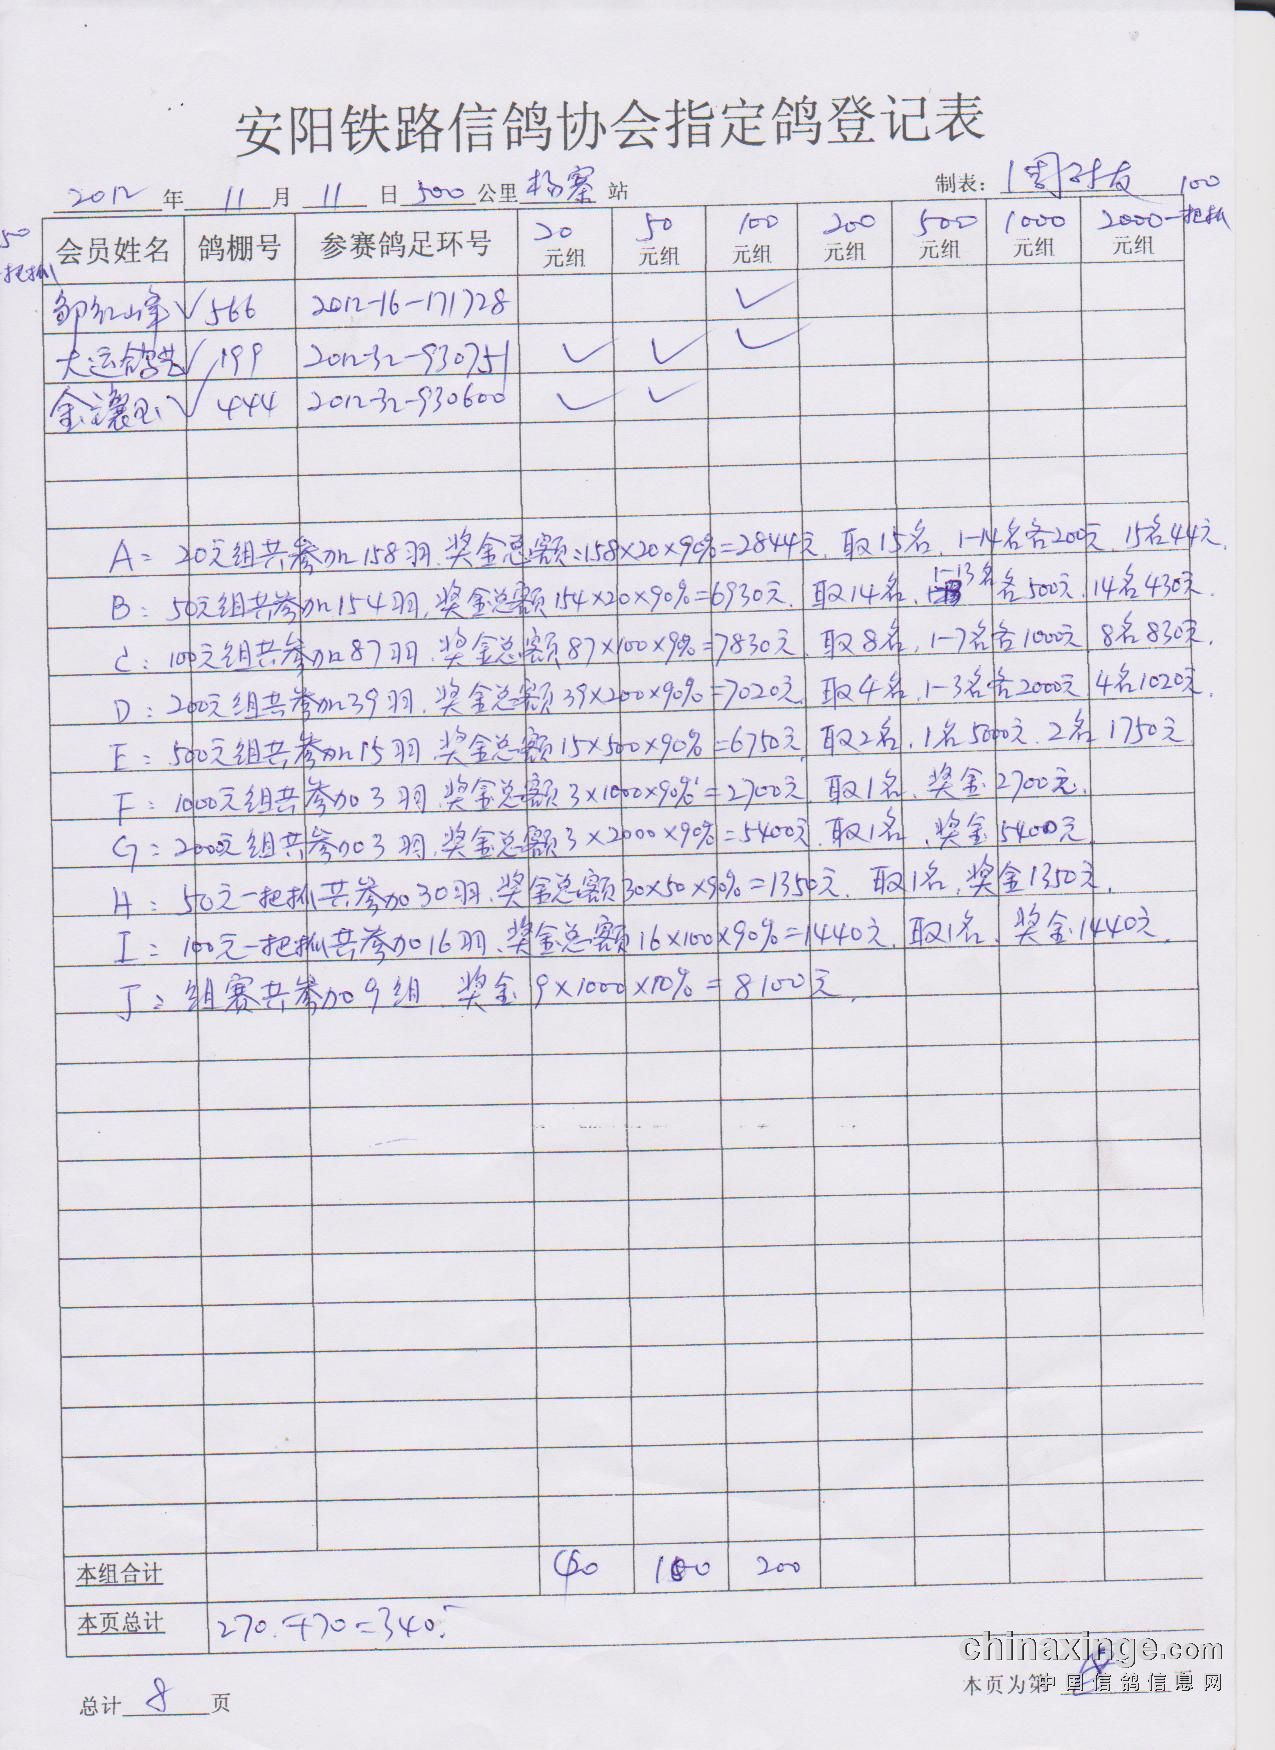 安阳铁路信鸽协会指定鸽登记表
2012年11月11日500公里杨寨站 制表:周财友
50一把抓 会员姓名 鸽棚号 参赛鸽足环号 20元组 50元组 100元组 200元组 500元组 1000元组 2000元组 100一把抓
邹红山峰√ 566 2012-16-171728 √
大运鸽舍√ 199 2012-32-930751 √ √ √
金让玉√ 444 2012-32-930600 √ √
A:20元组共参加158羽.奖金总额:158×20×90%=2844元.取15名.1-14名各200元.15名44元.
B:50元组共参加154羽.奖金总额154×20×90%=6930元.取14名.1-13名各500元.14名430元.
C:100元组共参加87羽.奖金总额87×100×9%=7830元.取8名,1-7名各1000元 8名830元.
D:200元组共参加39羽.奖金总额39×200×90%=7020元.取4名.1-3名各2000元 4名1020元.
E:500元组共参加15羽.奖金总额15×500×90%=6750元.取2名.1名5000元.2名1750元
F:1000元组共参加3羽.奖金总额3×1000×90%=2700元.取1名.奖金2700元.
G:2000元组共参加3羽.奖金总额3×2000×90%=5400元.取1名.奖金5400元.
H:50元一把抓共参加30羽.奖金总额30×50×90%=1350元.取1名.奖金1350元.
I:100元一把抓共参加16羽.奖金总额16×100×90%=1440元.取1名.奖金1440元.
J:组赛共参加9组.奖金9×1000×10%=8100元.
本组合计 100 200
本页总计 270.+70=340.-
总计8页 本页为第8页
chinaxinge.com
中国信鸽信息网